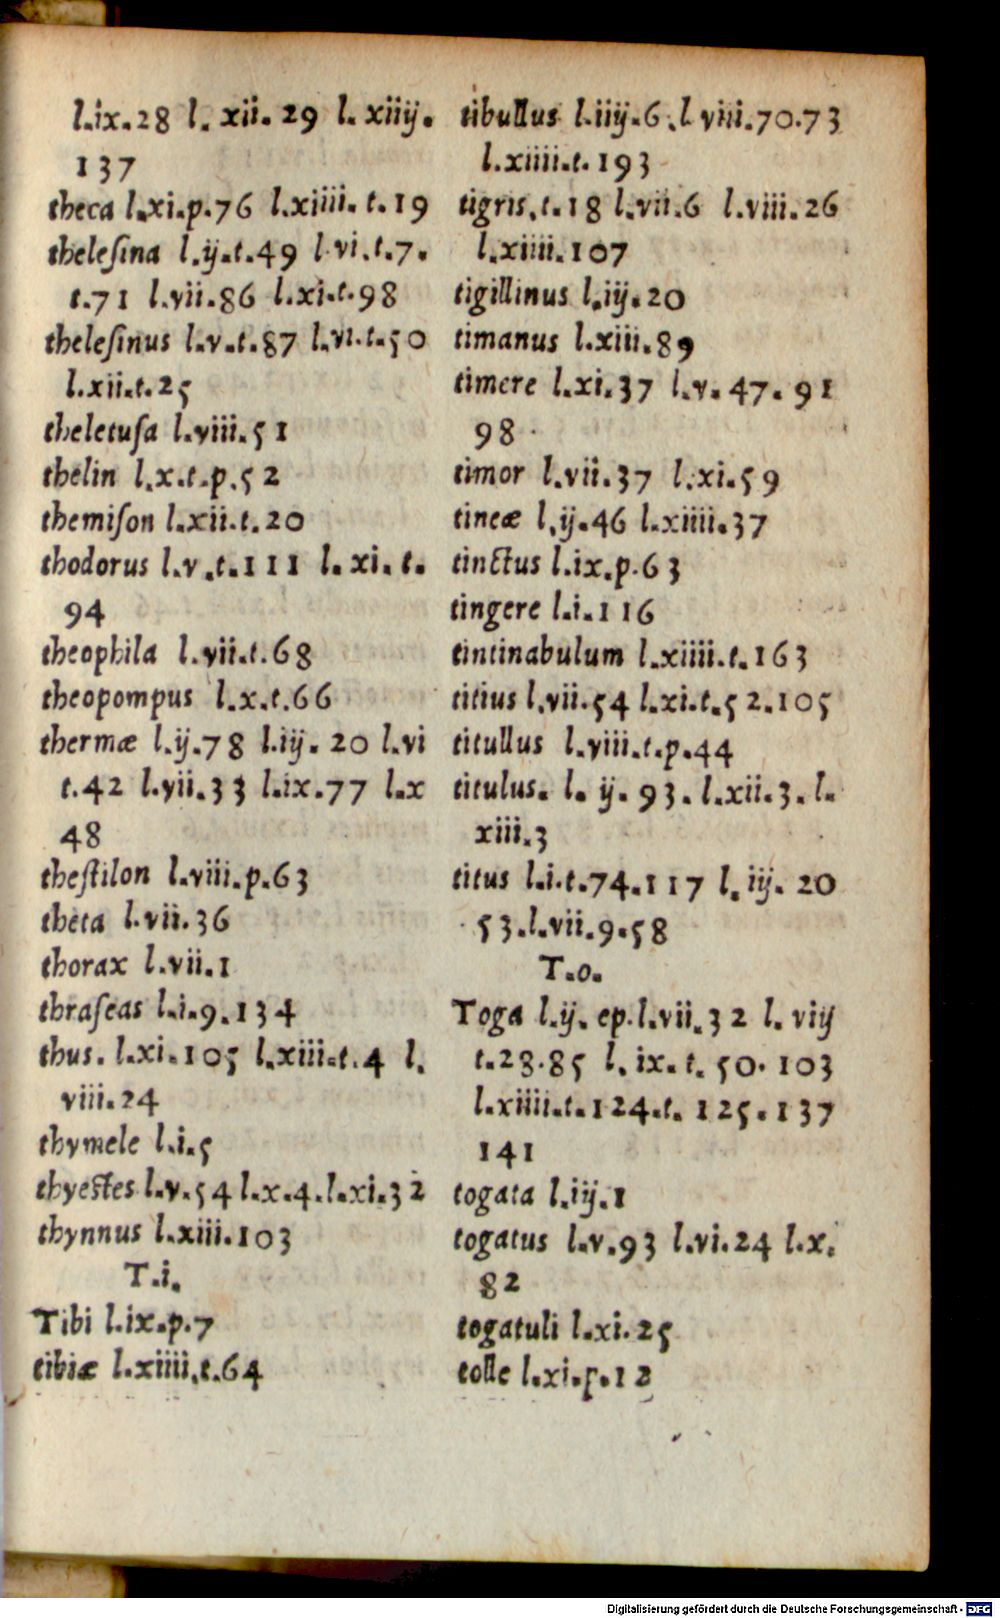 l.ix.28 l. xii. 29 l. xiiij.
137
theca l.xi.p.76 l.xiiii. t.19
theleſina l.ij.t.49 l.vi.t.7.
t.71 l.vii.86 l.xi.t.98
theleſinus l.v.t.87 l.vi.t.50
l.xii.t.25
theletuſa l.viii.51
thelin l.x.t.p.52
themiſon l.xii.t.20
thodorus l.v.t.111 l.xi.t.
94
theophila l.vii.t.68
theopompus l.x.t.66
thermæ l.ij.78 l.iij. 20 l.vi
t.42 l.vii.33 l.ix.77 l.x
48
theſtilon l.viii.p.63
theta l.vii.36
thorax l.vii.1
thraſeas l.i.9.134
thus. l.xi.105 l.xiii.t.4 l.
viii.24
thymele l.i.5
thyeſtes l.v.54 l.x.4.l.xi.32
thynnus l.xiii.103
T.i.
Tibi l.ix.p.7
tibiæ l.xiiii.t.64
tibullus l.iiij.6.l viii.70.73
l.xiiii.t.193
tigris.t.18 l.vii.6 l.viii.26
l.xiiii.107
tigillinus l.iij.20
timanus l.xiii.89
timere l.xi.37 l.v. 47. 91
98
timor l.vii.37 l.xi.59
tineæ l.ij.46 l.xiiii.37
tinctus l.ix.p.63
tingere l.i.116
tintinabulum l.xiiii.t.163
titius l.vii.54 l.xi.t.52.105
titullus l.viii.t.p.44
titulus. l. ij. 93. l.xii.3. l.
xiii.3
titus l.i.t.74.117 l.iij. 20
53.l.vii.9.58
T.o.
Toga l.ij. ep.l.vii.32 l. viij
t.28.85 l. ix. t. 50. 103
l.xiiii.t.124.t. 125.137
141
togata l.iij.1
togatus l.v.93 l.vi.24 l.x.
82
togatuli l.xi.25
tolle l.xi.p.12
Digitalisierung gefördert durch die Deutsche Forschungsgemeinschaft - DFG